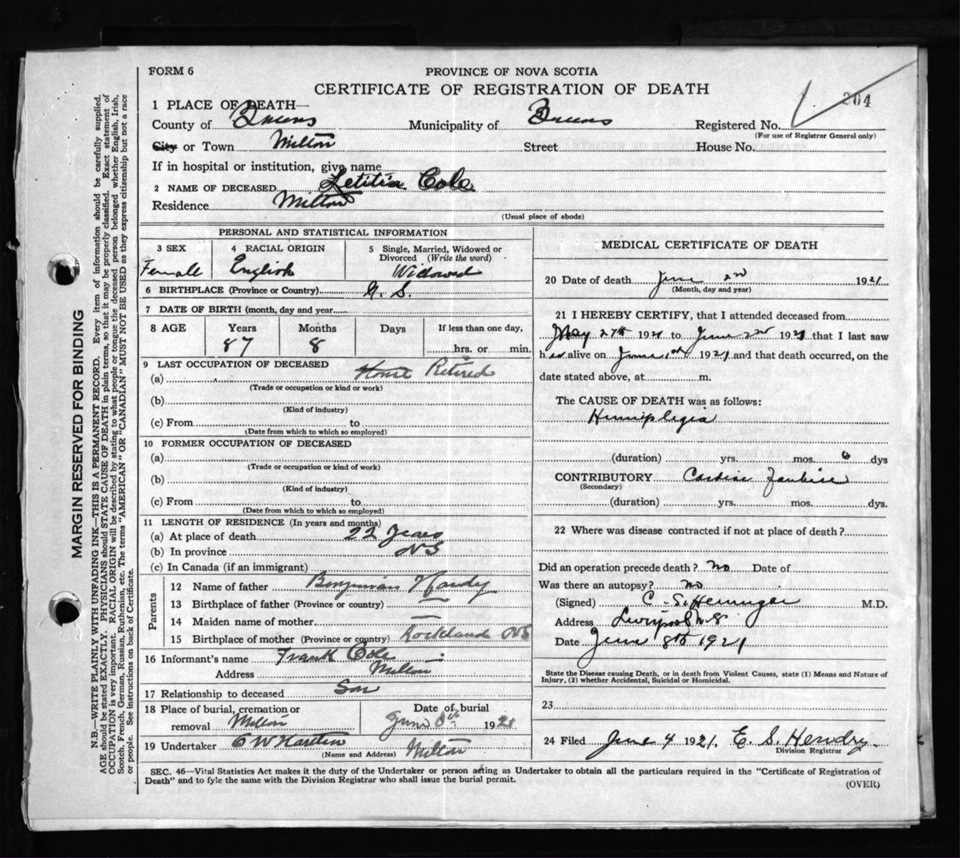 FORM 6
PROVINCE OF NOVA SCOTIA
CERTIFICATE OF REGISTRATION OF DEATH
264
1 PLACE OF DEATH—
County of Queens Municipality of Queens Registered No.
(For use of Registrar General only)
City or Town Milton Street House No.
If in hospital or institution, give name
2 NAME OF DECEASED Letitia Cole
Residence Milton
(Usual place of abode)
PERSONAL AND STATISTICAL INFORMATION
3 SEX Female
4 RACIAL ORIGIN English
5 Single, Married, Widowed or Divorced (Write the word) Widowed
6 BIRTHPLACE (Province or Country) N. S.
7 DATE OF BIRTH (month, day and year)
8 AGE Years Months Days If less than one day,
87 8 hrs. or min.
9 LAST OCCUPATION OF DECEASED
(a) House Retired
(Trade or occupation or kind or work)
(b)
(Kind of industry)
(c) From to
(Date from which to which so employed)
10 FORMER OCCUPATION OF DECEASED
(a)
(Trade or occupation or kind of work)
(b)
(Kind of industry)
(c) From to
(Date from which to which so employed)
11 LENGTH OF RESIDENCE (In years and months)
(a) At place of death 22 Years
(b) In province NS
(c) In Canada (if an immigrant)
Parents
12 Name of father Benjamin Hardy
13 Birthplace of father (Province or country) —
14 Maiden name of mother —
15 Birthplace of mother (Province or country) Rockland NS
16 Informant's name Frank Cole
Address Milton
17 Relationship to deceased Son
18 Place of burial, cremation or removal Milton
Date of burial June 1921
19 Undertaker Milton
(Name and Address)
MEDICAL CERTIFICATE OF DEATH
20 Date of death June 2nd 1921
(Month, day and year)
21 I HEREBY CERTIFY, that I attended deceased from
May 27th 1921 to June 2nd 1921 that I last saw
her alive on June 1st 1921 and that death occurred, on the
date stated above, at m.
The CAUSE OF DEATH was as follows:
Hemiplegia
(duration) yrs. mos. 6 dys
CONTRIBUTORY
(Secondary)
(duration) yrs. mos. dys.
22 Where was disease contracted if not at place of death?
Did an operation precede death? no Date of
Was there an autopsy? no
(Signed) C. M.D.
Address Liverpool N.S
Date June 8th 1921
State the Disease causing Death, or in death from Violent Causes, state (1) Means and Nature of
Injury, (2) whether Accidental, Suicidal or Homicidal.
23
24 Filed June 4 1921. E. S. Hendry.
Division Registrar
SEC. 46—Vital Statistics Act makes it the duty of the Undertaker or person acting as Undertaker to obtain all the particulars required in the "Certificate of Registration of
Death" and to fyle the same with the Division Registrar who shall issue the burial permit.
(OVER)
MARGIN RESERVED FOR BINDING
N.B.—WRITE PLAINLY WITH UNFADING INK—THIS IS A PERMANENT RECORD. Every item of information should be carefully supplied.
AGE should be stated EXACTLY. PHYSICIANS should STATE CAUSE OF DEATH in plain terms, so that it may be properly classified. Exact statement of
OCCUPATION is very important. RACIAL ORIGIN will be described by stating to what people or tongue the deceased person belonged whether English, Irish,
Scotch, French, German, Russian, Ruthenian, etc. The terms "AMERICAN" OR "CANADIAN" MUST NOT BE USED as they express citizenship but not a race
or people. See instructions on back of Certificate.